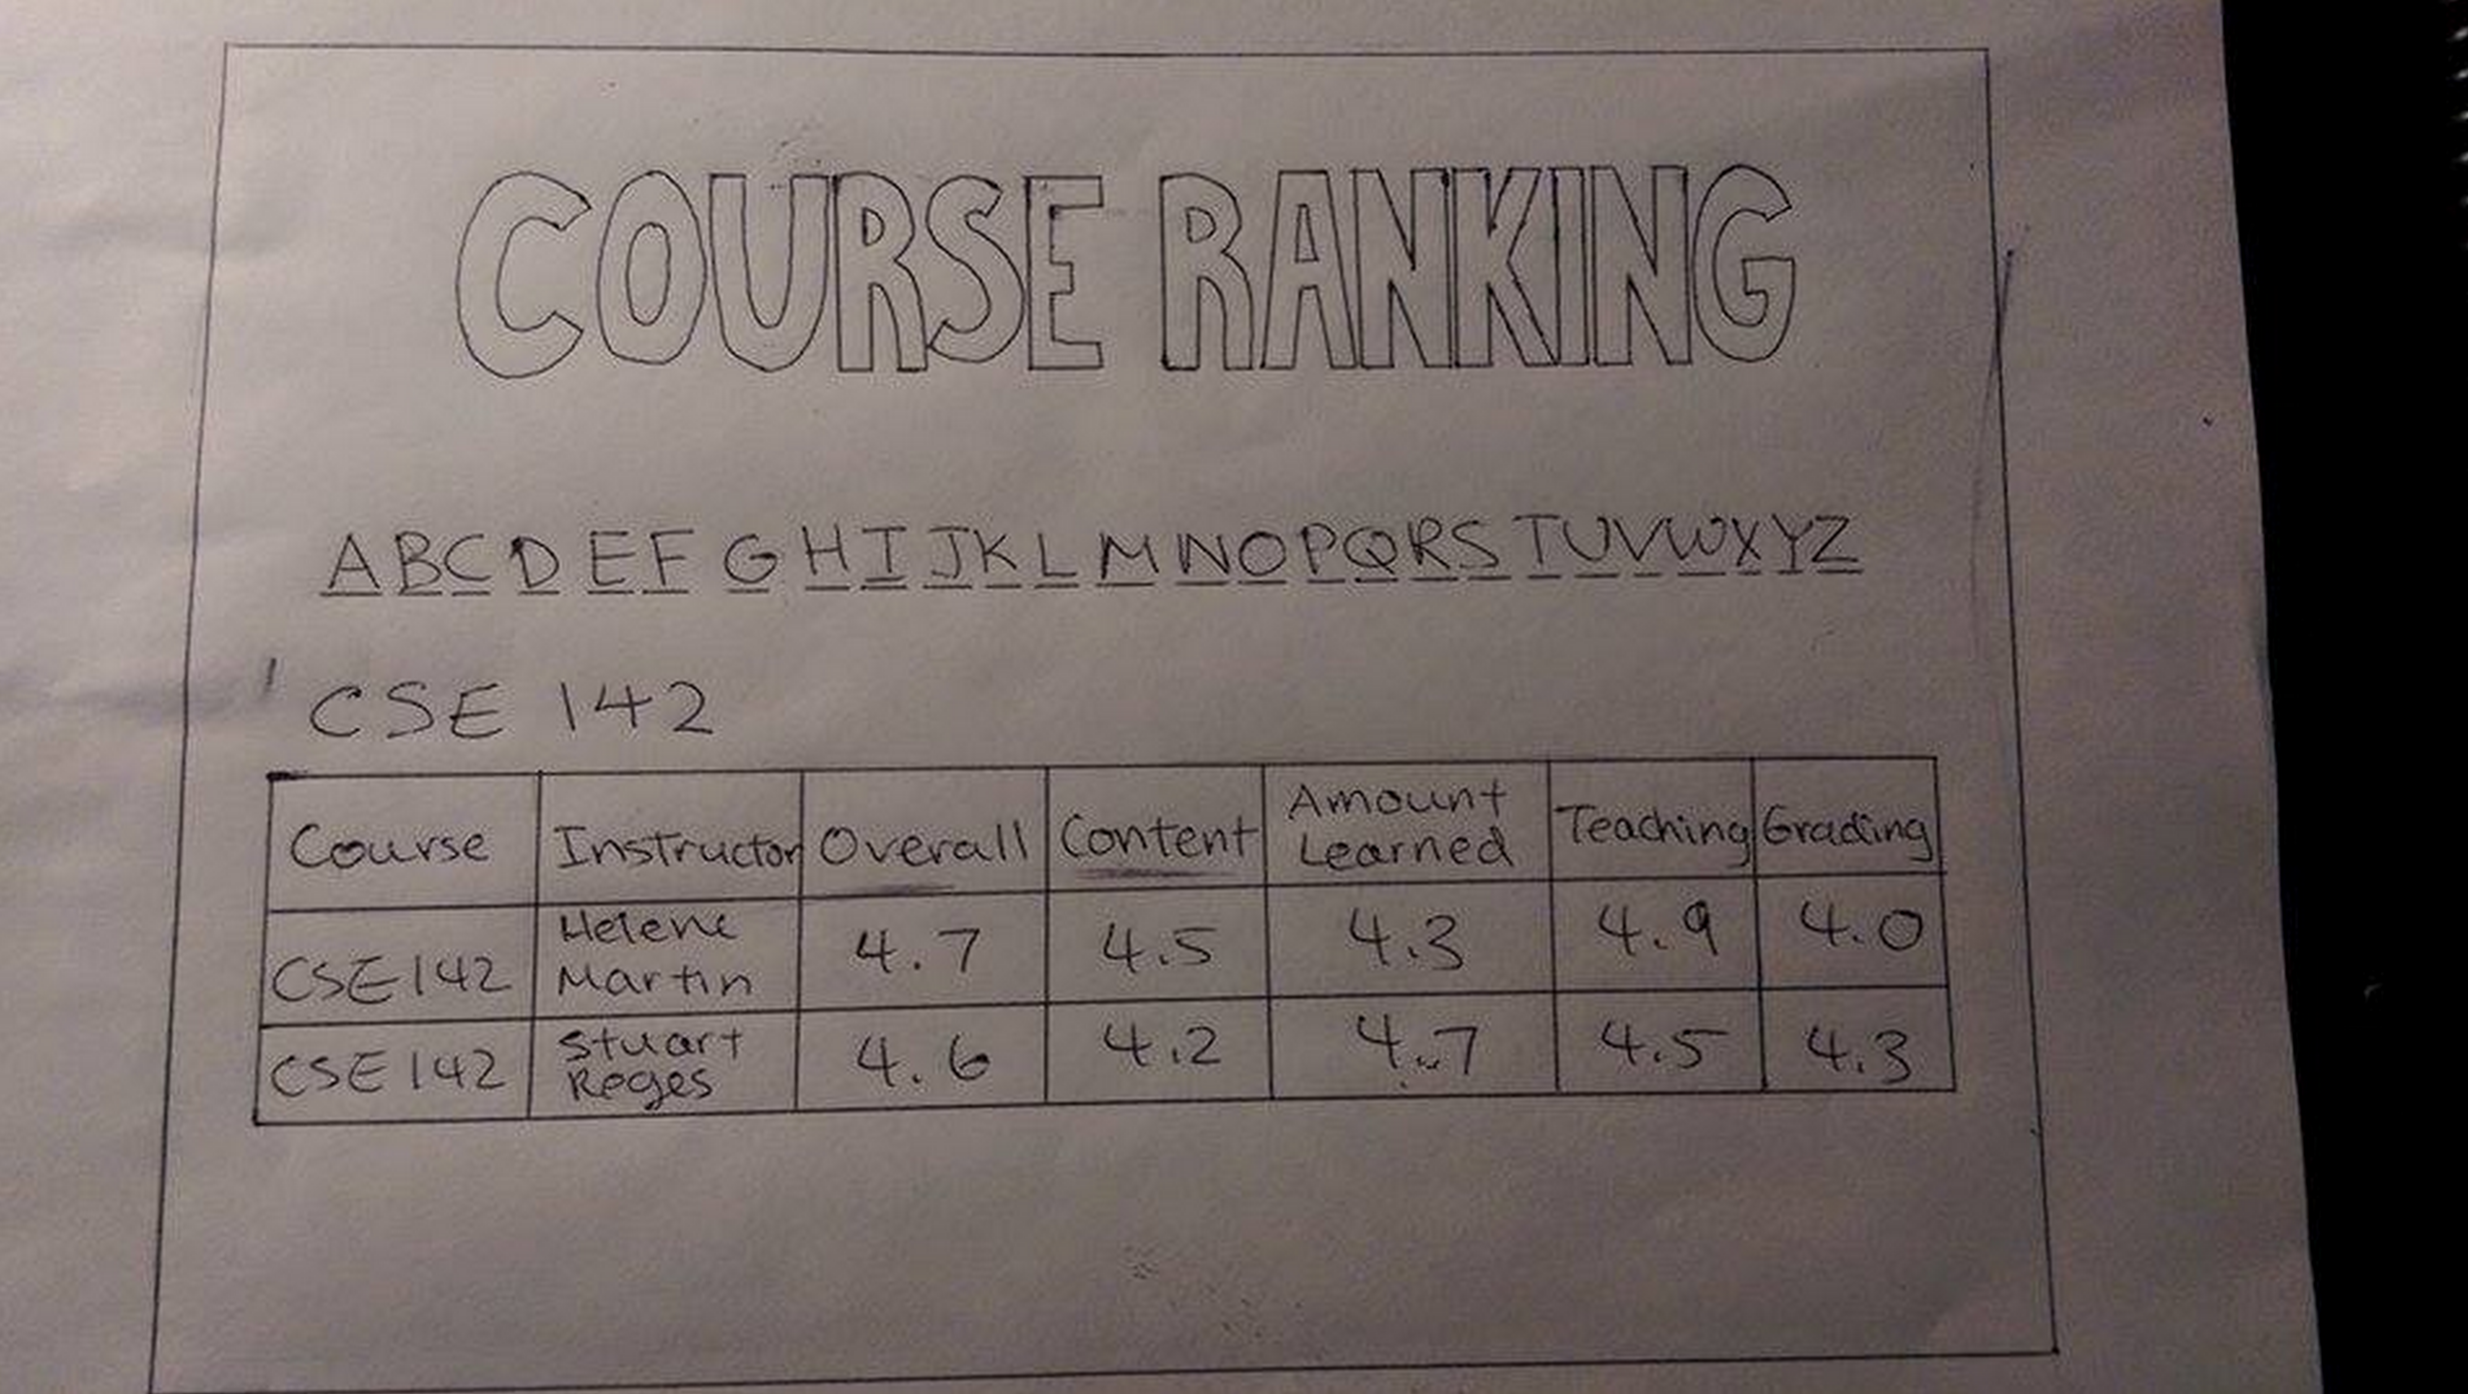 COURSE RANKING
A B C D E F G H I J K L M N O P Q R S T U V W X Y Z
CSE 142
Course Instructor Overall Content Amount Learned Teaching Grading
CSE 142 Helene Martin 4.7 4.5 4.3 4.9 4.0
CSE 142 Stuart Reges 4.6 4.2 4.7 4.5 4.3